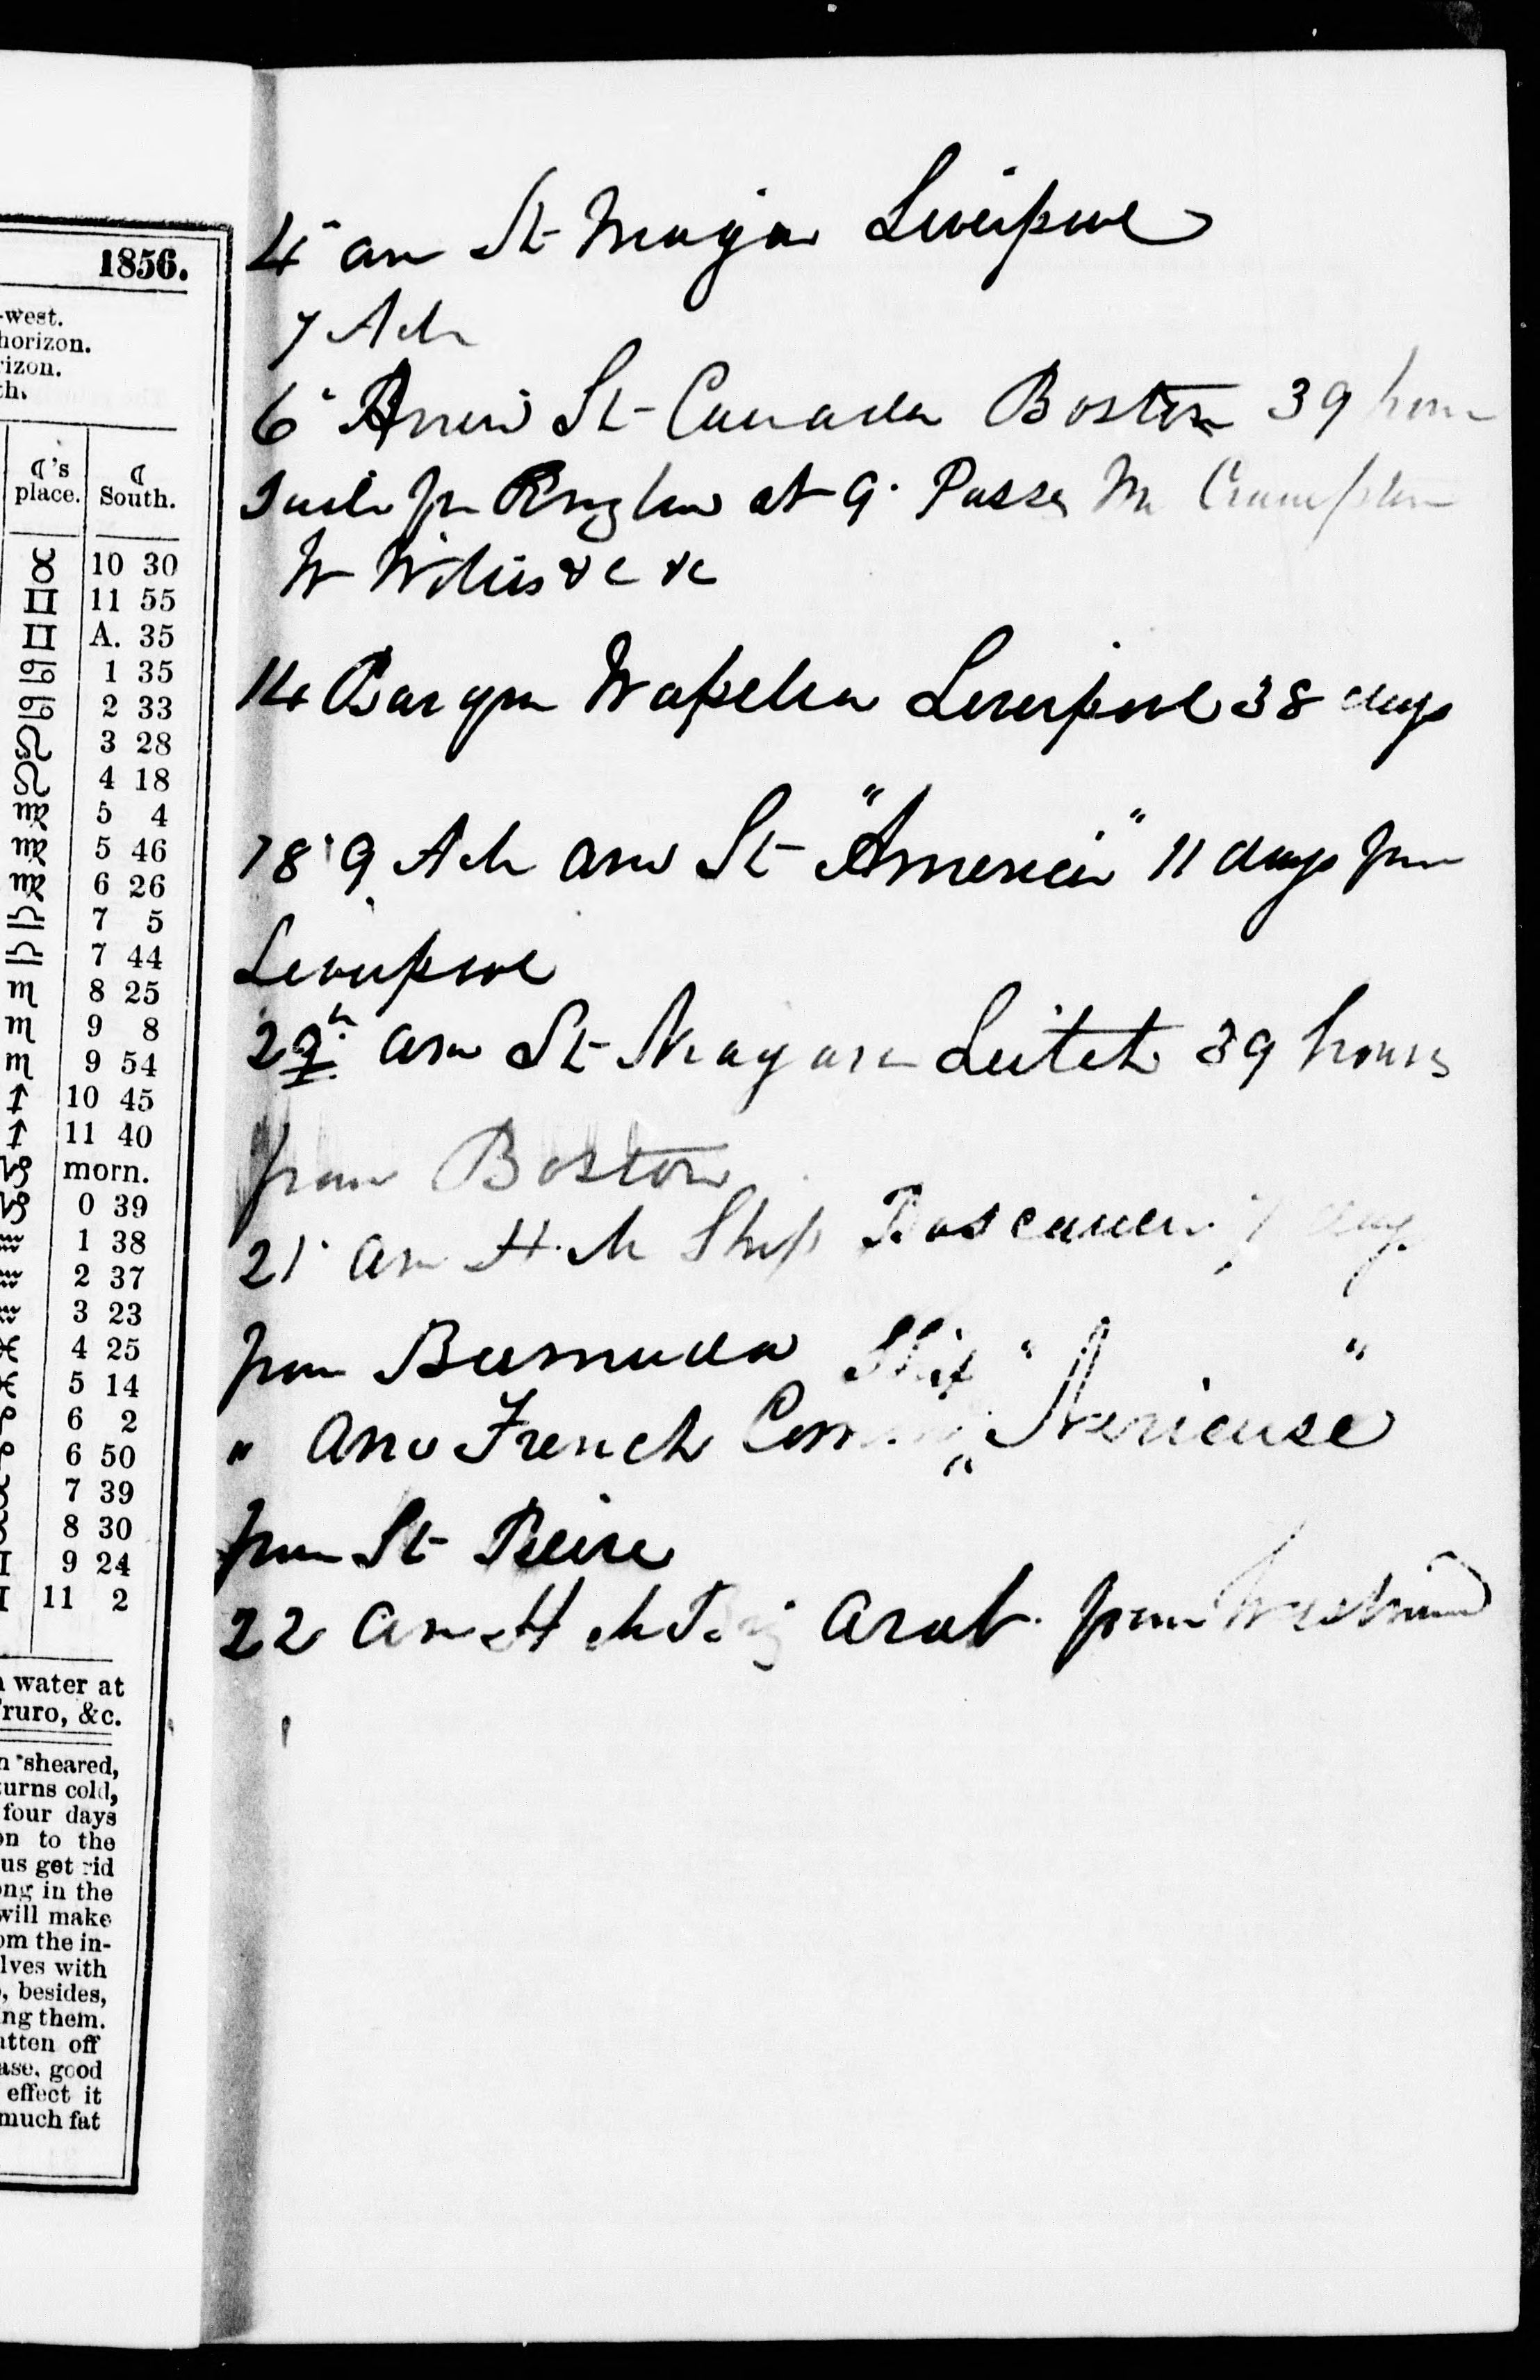 1856.
-west.
horizon.
rizon.
th.
☾'s place. ☾ South.
♉ 10 30
♊ 11 55
♊ A. 35
♋ 1 35
♋ 2 33
♌ 3 28
♌ 4 18
♍ 5 4
♍ 5 46
♍ 6 26
♎ 7 5
♎ 7 44
♏ 8 25
♏ 9 8
♏ 9 54
♐ 10 45
♐ 11 40
♑ morn.
♑ 0 39
♒ 1 38
♒ 2 37
♒ 3 23
♓ 4 25
♓ 5 14
♈ 6 2
♈ 6 50
♉ 7 39
♉ 8 30
♊ 9 24
♊ 11 2
n water at
Truro, &c.
n sheared,
turns cold,
four days
on to the
us get rid
ong in the
will make
om the in-
lves with
, besides,
ing them.
atten off
ase, good
effect it
much fat
4 arr St Liverpool
7 A M
6 St Canada Boston 39 hour
at 9. Passg Mr Crampton
W &c &c
14 Barque Liverpool 38 days
18 9 A M arrd St "America" 11 days from
Liverpool
20th arr St Niagara Leitch 39 hours
from Boston
21 arr H. M Ship Boscawen 7 days
from Bermuda Ship " "
" arrd French
from St
22 arr H M Brig Arab from